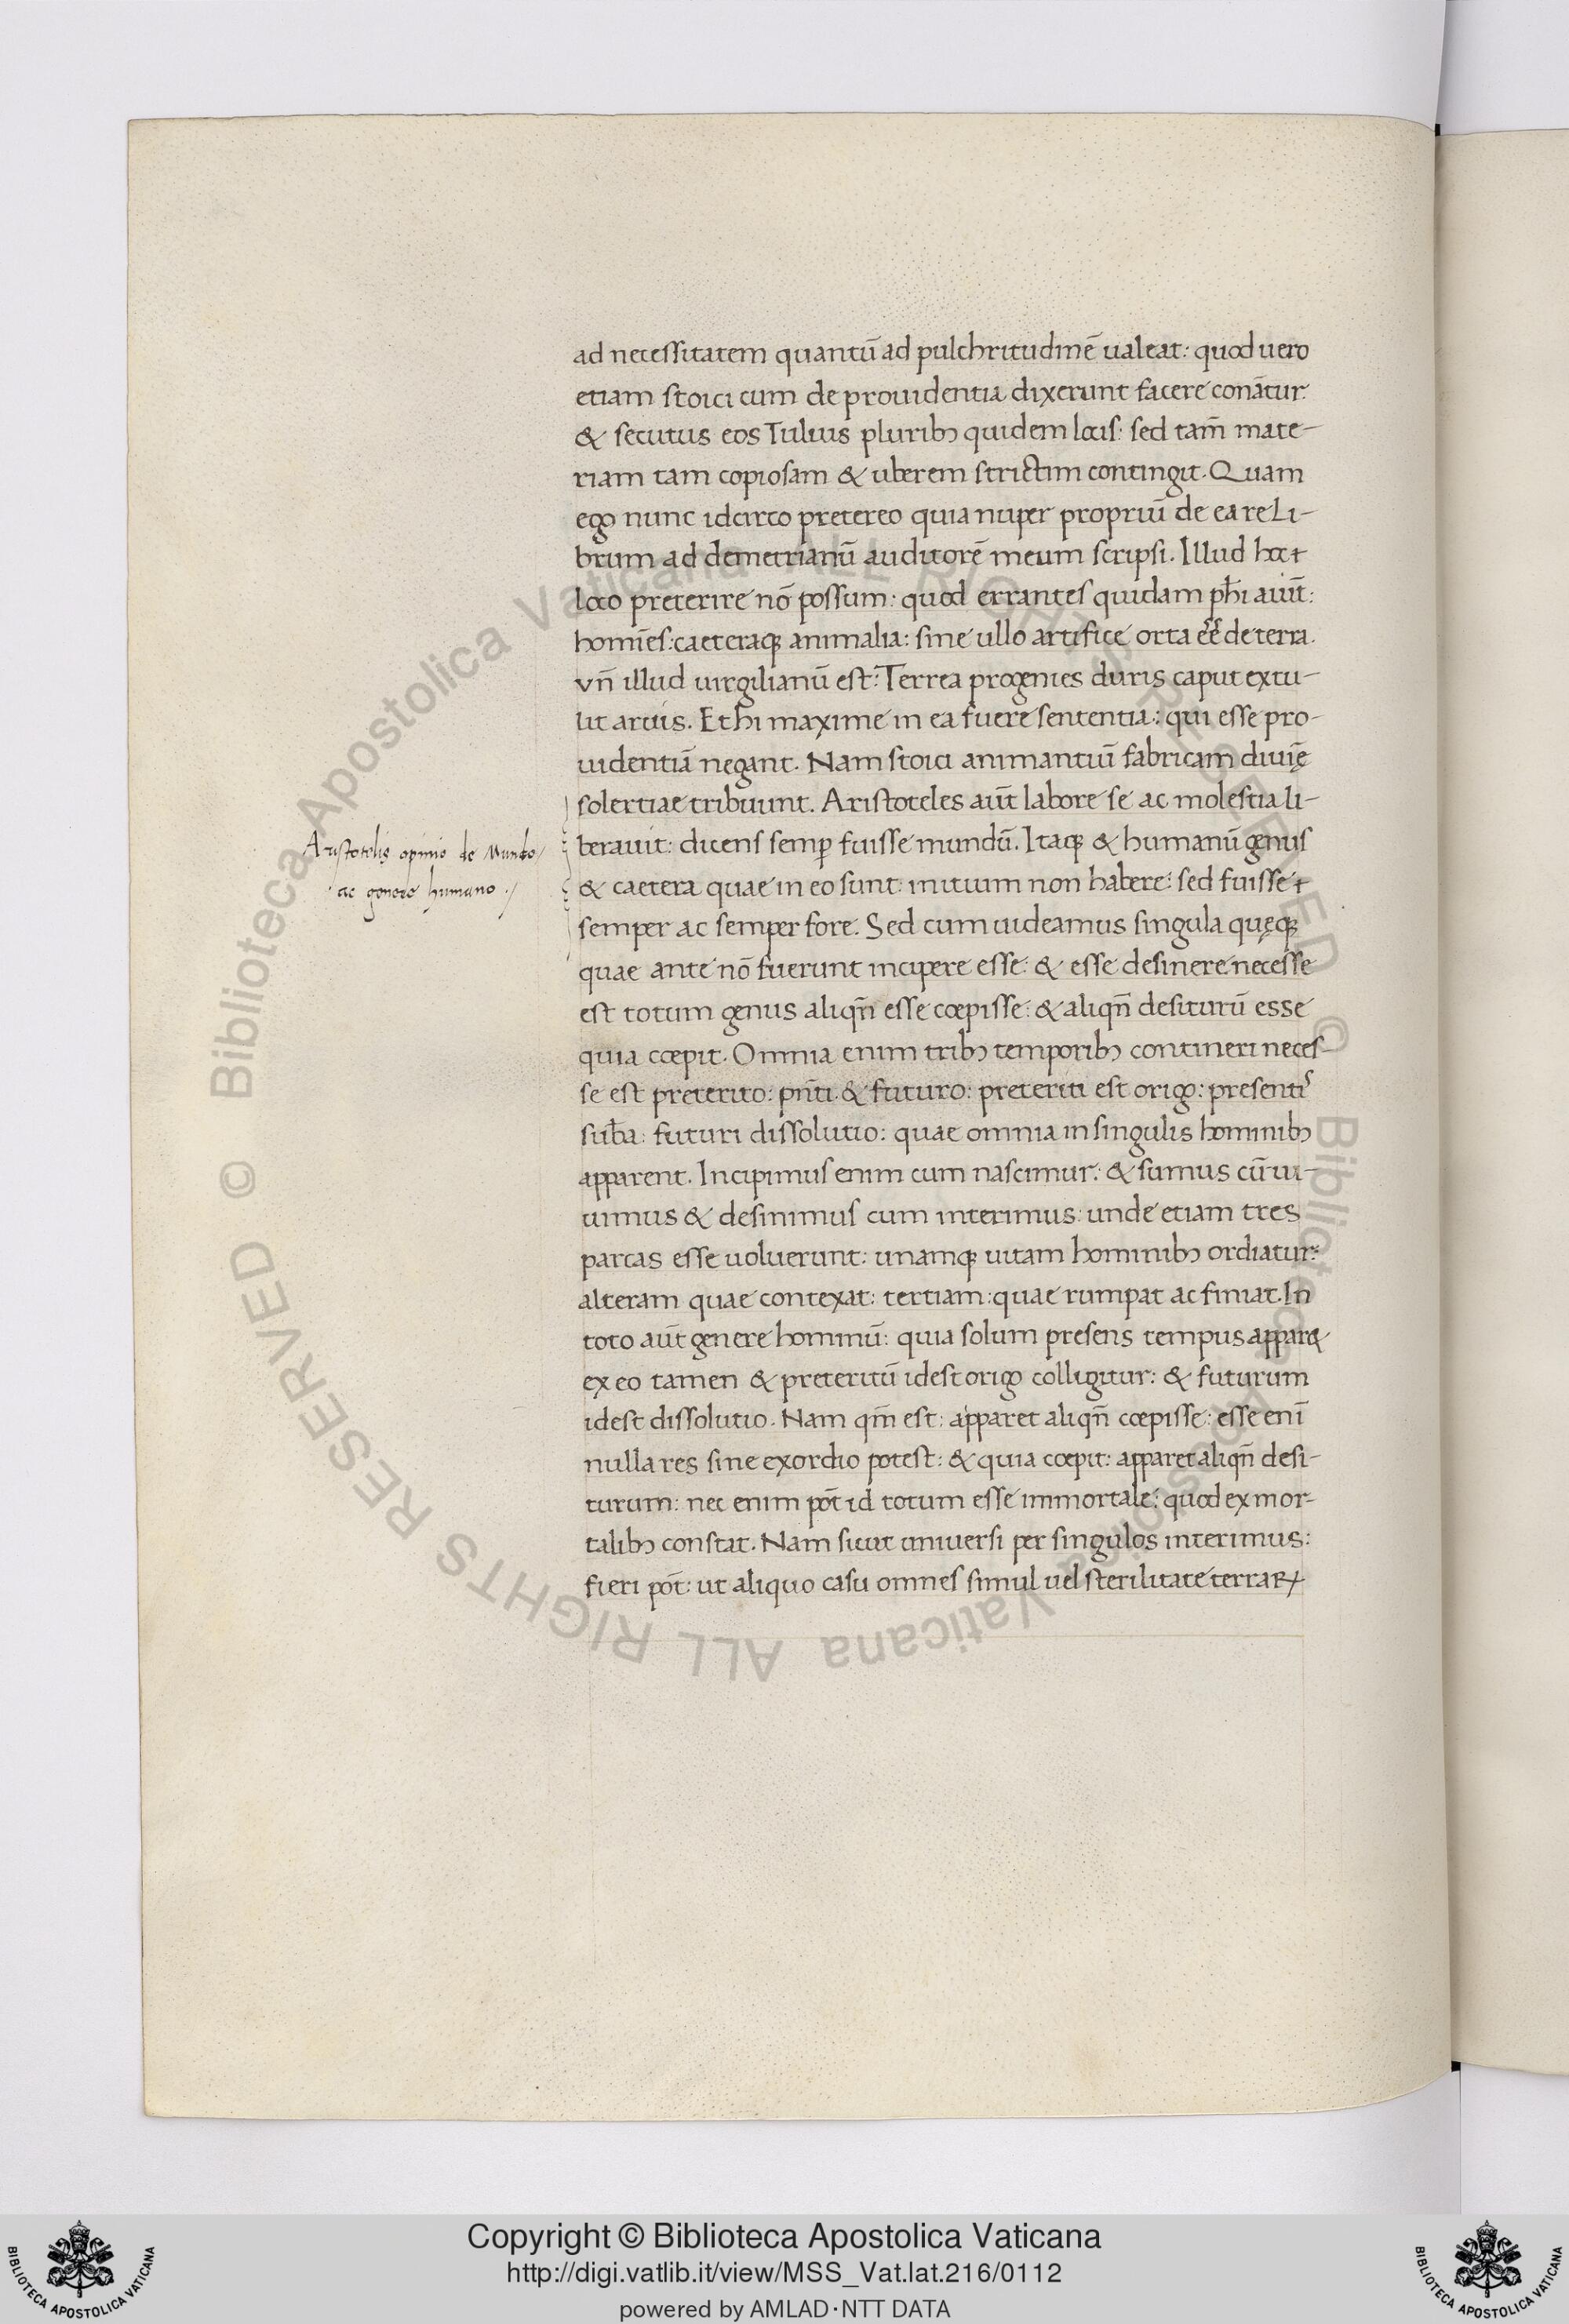 ad necessitatem quantū ad pulchritudinē ualeat: quod uero
etiam stoici cum de prouidentia dixerunt facere conātur.
& secutus eos Tulius pluribꝫ quidem locis: sed tam̄ mate-
riam tam copiosam & uberem strictim contingit. Quam
ego nunc idcirco pretereo quia nuper propriū de ea re Li-
brum ad demetrianū auditorē meum scripsi. Illud hoc
loco preterire nō possum: quod errantes quidam ph̄i aiūt:
homīes: caeteraqꝫ animalia: sine ullo artifice orta eē̄ de terra.
vn̄ illud uirgilianū est: Terrea progenies duris caput extu-
lit aruis. Et hi maxime in ea fuere sententia: qui esse pro-
uidentiā negant. Nam stoici animantiū fabricam diuīę
solertiae tribuunt. Aristoteles aūt labore se ac molestia li-
Aristotelis opinio de Mundo
ac genere humano
berauit: dicens semꝑ fuisse mundū. Itaqꝫ & humanū genus
& caetera quae in eo sunt: initium non habere: sed fuisse
semper ac semper fore. Sed cum uideamus singula quęqꝫ
quae ante nō fuerunt incipere esse: & esse desinere necesse
est totum genus aliqn̄ esse cœpisse: & aliqn̄ desiturū esse
quia cœpit. Omnia enim tribꝫ temporibꝫ contineri neces-
se est preterito: pn̄ti. & futuro: preteriti est origo: presentis
sub̄a: futuri dissolutio: quae omnia in singulis hominibꝫ
apparent. Incipimus enim cum nascimur: & sumus cū ui-
uimus & desinimus cum interimus: unde etiam tres
parcas esse uoluerunt: unamqꝫ uitam hominibꝫ ordiatur:
alteram quae contexat: tertiam: quae rumpat ac finiat. In
toto aūt genere hominū: quia solum presens tempus appar&
ex eo tamen & preteritū idest origo colligitur: & futurum
idest dissolutio. Nam qm̄ est: apparet aliqn̄ cœpisse: esse enī
nulla res sine exordio potest: & quia cœpit: apparet aliqn̄ desi-
turum: nec enim pōt id totum esse immortale: quod ex mor-
talibꝫ constat. Nam sicut uniuersi per singulos interimus:
fieri pōt: ut aliquo casu omnes simul uel sterilitate terraꝝ
© Biblioteca Apostolica Vaticana ALL RIGHTS RESERVED
© Biblioteca Apostolica Vaticana ALL RIGHTS RESERVED
Copyright © Biblioteca Apostolica Vaticana
http://digi.vatlib.it/view/MSS_Vat.lat.216/0112
powered by AMLAD·NTT DATA
BIBLIOTECA APOSTOLICA VATICANA
BIBLIOTECA APOSTOLICA VATICANA